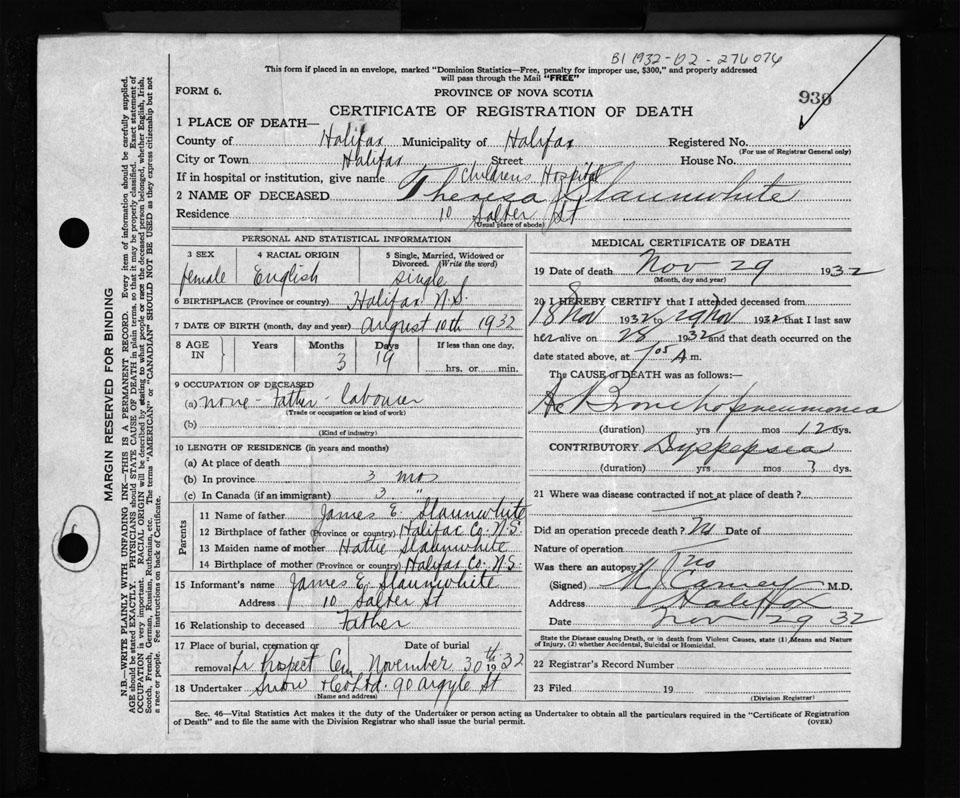 B1 1932-02-276074
This form if placed in an envelope, marked "Dominion Statistics—Free, penalty for improper use, $300," and properly addressed
will pass through the Mail "FREE"
FORM 6.
PROVINCE OF NOVA SCOTIA
930
CERTIFICATE OF REGISTRATION OF DEATH
1 PLACE OF DEATH—
County of Halifax Municipality of Halifax Registered No.
(For use of Registrar General only)
City or Town Halifax Street House No.
If in hospital or institution, give name Childrens Hospital
2 NAME OF DECEASED Theresa Slaunwhite
Residence 10 Salter St
(Usual place of abode)
PERSONAL AND STATISTICAL INFORMATION
3 SEX 4 RACIAL ORIGIN 5 Single, Married, Widowed or Divorced. (Write the word)
female English single
6 BIRTHPLACE (Province or country) Halifax N.S.
7 DATE OF BIRTH (month, day and year) August 10th 1932
8 AGE IN Years Months Days If less than one day,
3 19 hrs. or min.
9 OCCUPATION OF DECEASED
(a) none - Father - labourer
(Trade or occupation or kind of work)
(b)
(Kind of industry)
10 LENGTH OF RESIDENCE (in years and months)
(a) At place of death
(b) In province 3 mos
(c) In Canada (if an immigrant) 3 "
Parents
11 Name of father James E. Slaunwhite
12 Birthplace of father (Province or country) Halifax Co. N.S.
13 Maiden name of mother Hattie Slaunwhite
14 Birthplace of mother (Province or country) Halifax Co. N.S.
15 Informant's name James E. Slaunwhite
Address 10 Salter St
16 Relationship to deceased Father
17 Place of burial, cremation or removal Date of burial
Prospect Cem November 30th 1932
18 Undertaker Snow & Co Ltd. 90 Argyle St
(Name and address)
MEDICAL CERTIFICATE OF DEATH
19 Date of death Nov 29 1932
(Month, day and year)
20 I HEREBY CERTIFY that I attended deceased from
18 Nov 1932 to 29 Nov 1932 that I last saw
her alive on 28 1932 and that death occurred on the
date stated above, at 7.05 A m.
The CAUSE of DEATH was as follows:—
Ac Bronchopneumonia
(duration) yrs mos 12 dys.
CONTRIBUTORY Dyspepsia
(duration) yrs mos 3 dys.
21 Where was disease contracted if not at place of death?
Did an operation precede death? No Date of
Nature of operation
Was there an autopsy? no
(Signed) Carney M.D.
Address Halifax
Date Nov 29 32
State the Disease causing Death, or in death from Violent Causes, state (1) Means and Nature
of Injury, (2) whether Accidental, Suicidal or Homicidal.
22 Registrar's Record Number
23 Filed 19
(Division Registrar)
Sec. 46—Vital Statistics Act makes it the duty of the Undertaker or person acting as Undertaker to obtain all the particulars required in the "Certificate of Registration
of Death" and to file the same with the Division Registrar who shall issue the burial permit.
(OVER)
MARGIN RESERVED FOR BINDING
N.B.—WRITE PLAINLY WITH UNFADING INK—THIS IS A PERMANENT RECORD. Every item of information should be carefully supplied.
AGE should be stated EXACTLY. PHYSICIANS should STATE CAUSE OF DEATH in plain terms, so that it may be properly classified. Exact statement of
OCCUPATION is very important. RACIAL ORIGIN will be described by stating to what people or race the deceased person belonged, whether English, Irish,
Scotch, French, German, Russian, Ruthenian, etc. The terms "AMERICAN" or "CANADIAN" SHOULD NOT BE USED as they express citizenship but not
a race or people. See instructions on back of Certificate.